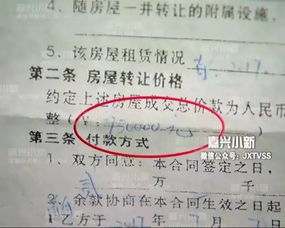 4.随房屋一并转让的附属设施.
5.该房屋租赁情况
第二条 房屋转让价格
约定上述房屋成交总价款为人民币
整(¥: 950000元)
第三条 付款方式
1、双方同意:本合同签定之日,
万 千
2、余款协商在本合同生效之日起
乙方于
嘉兴小新
微信公众号:JXTVSS